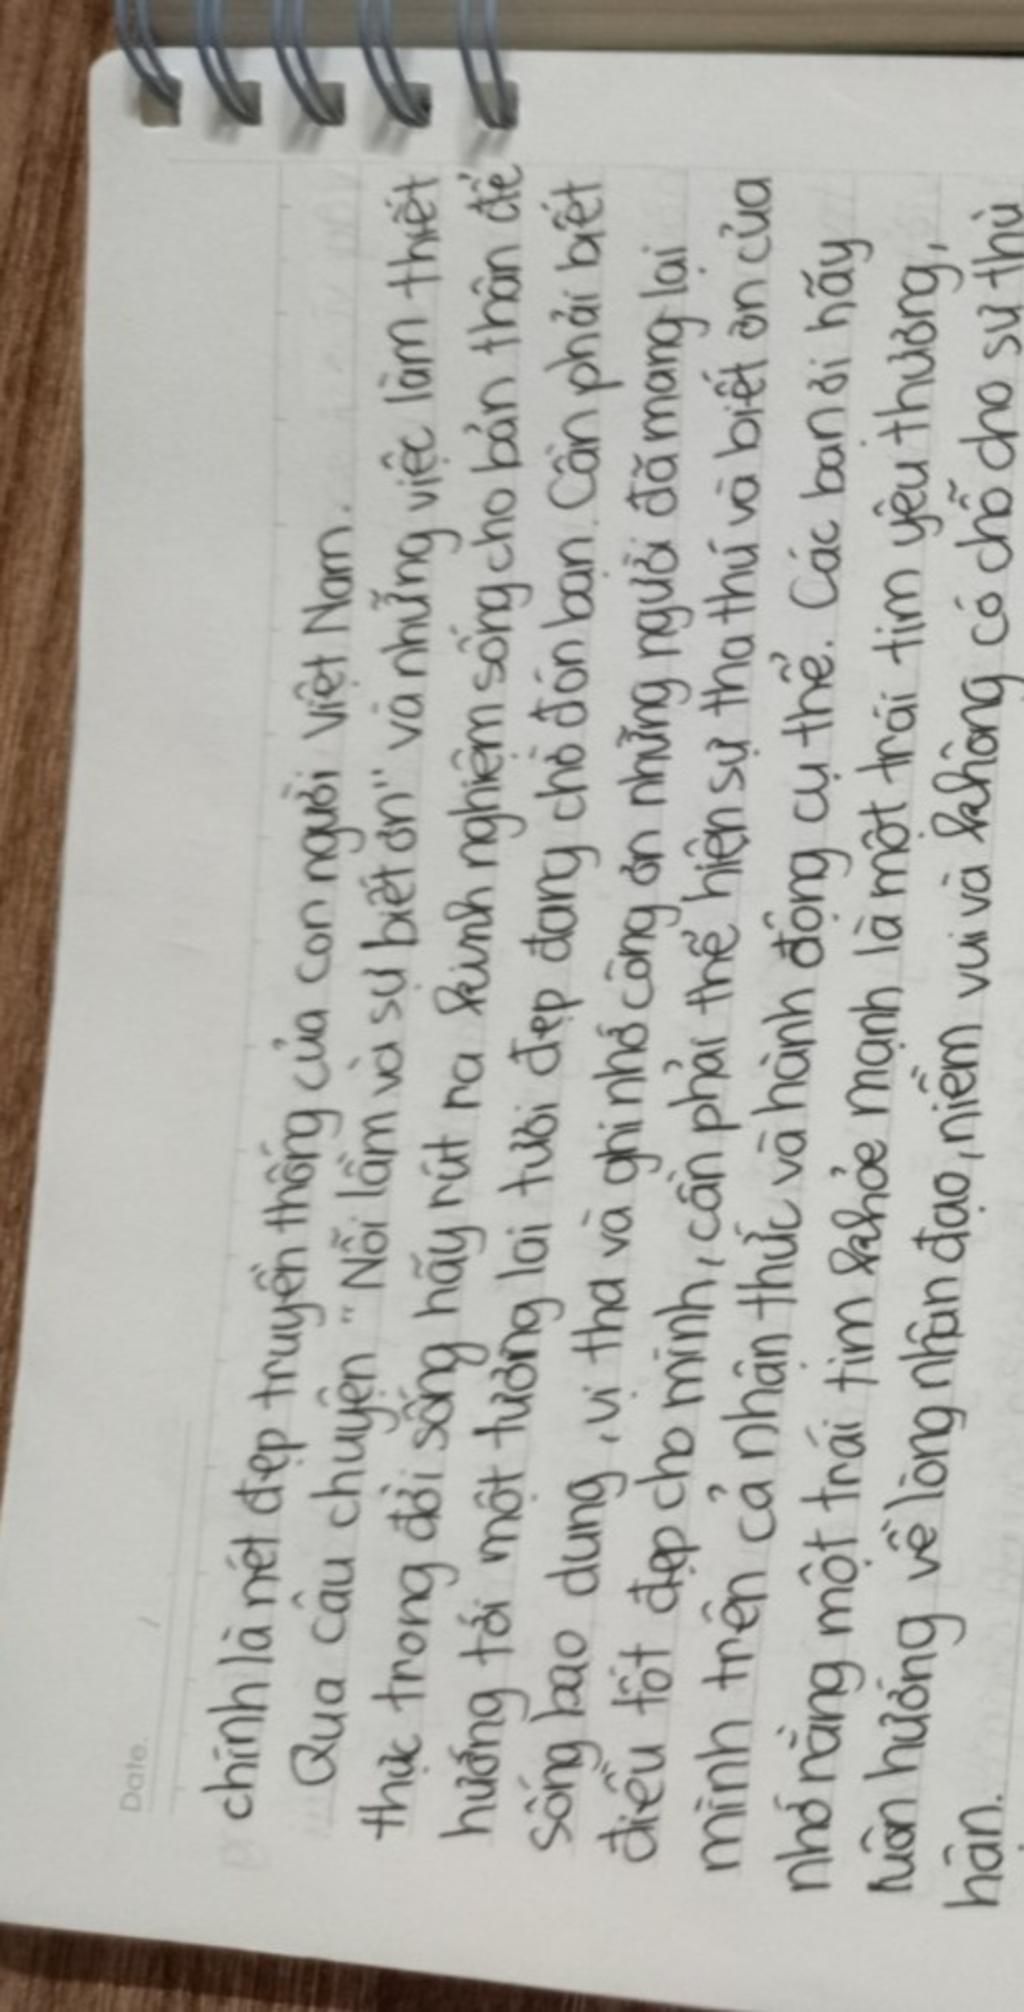 Date. /
chính là nét đẹp truyền thống của con người Việt Nam.
Qua câu chuyện "Nỗi lầm và sự biết ơn" và những việc làm thiết
thực trong đời sống hãy rút ra kinh nghiệm sống cho bản thân để
hướng tới một tương lai tươi đẹp đang chờ đón bạn. Cần phải biết
sống bao dung, vị tha và ghi nhớ công ơn những người đã mang lại
điều tốt đẹp cho mình, cần phải thể hiện sự tha thứ và biết ơn của
mình trên cả nhận thức và hành động cụ thể. Các bạn ơi hãy
nhớ rằng một trái tim khỏe mạnh là một trái tim yêu thương,
luôn hướng về lòng nhân đạo, niềm vui và không có chỗ cho sự thù
hận.